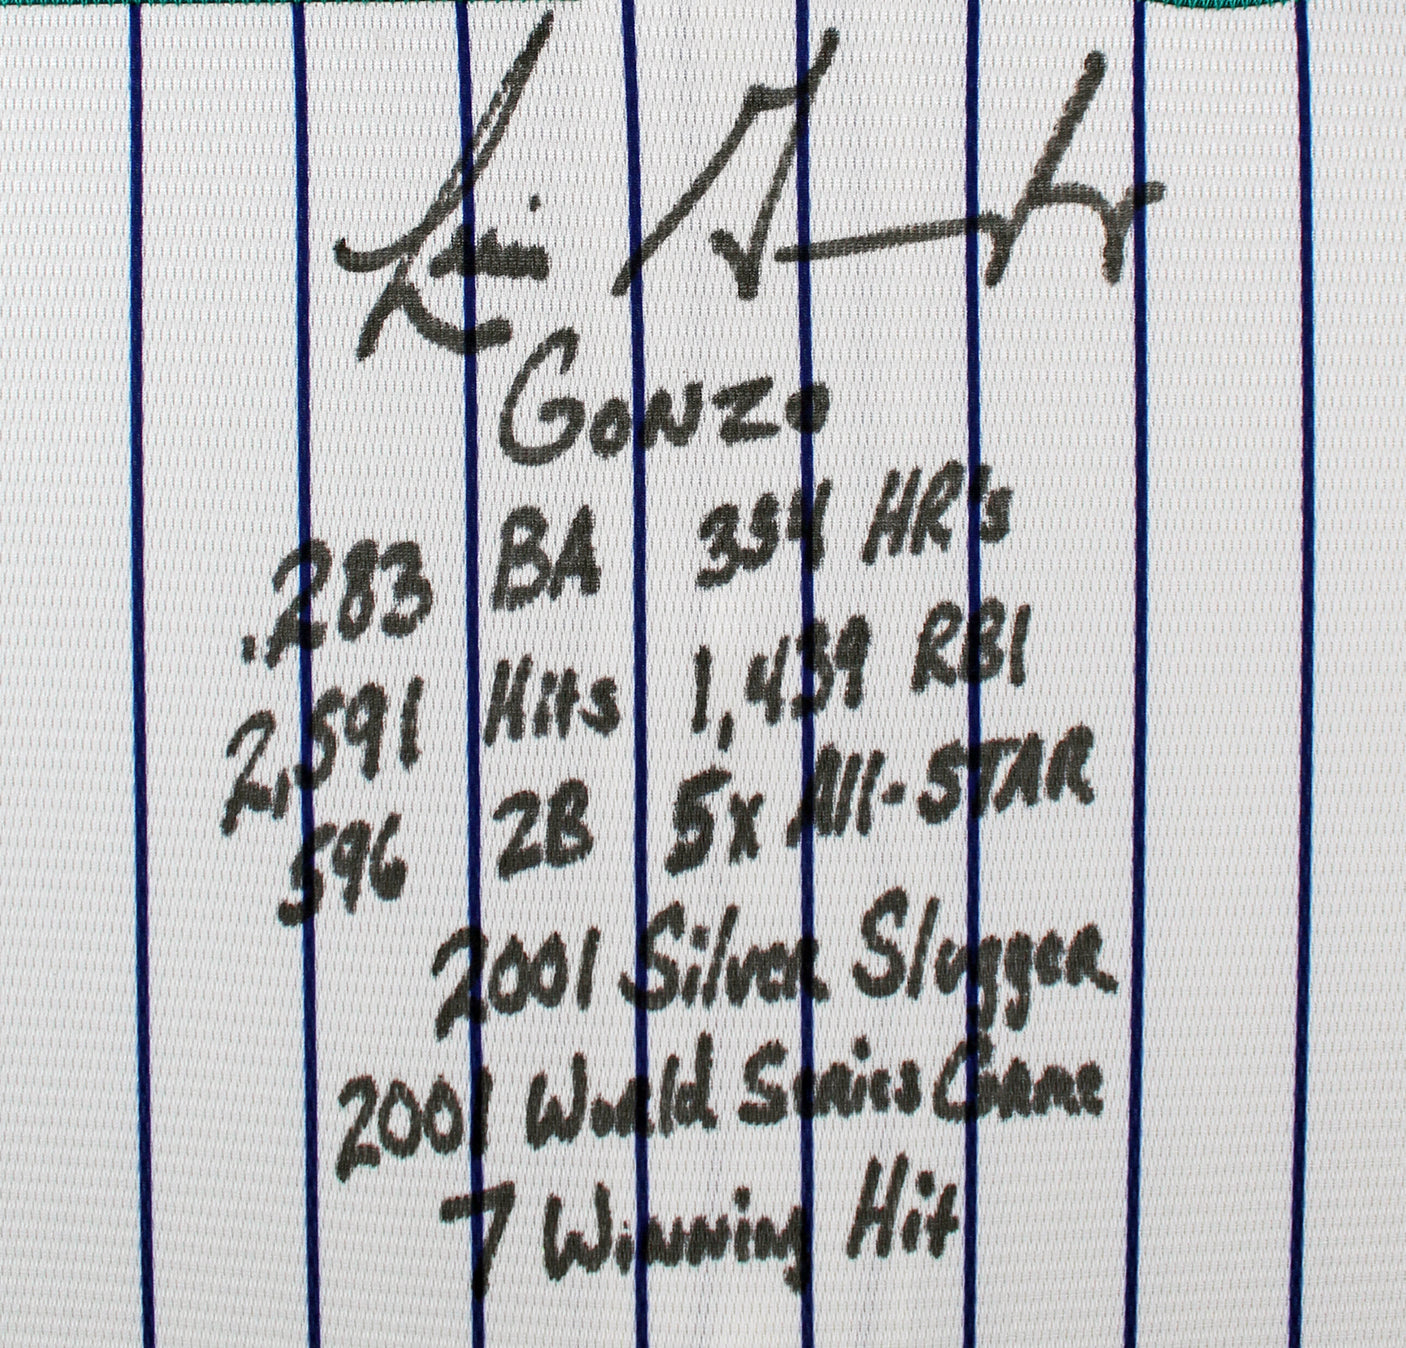 Luis Gonzalez
GONZO
.283 BA 354 HR's
2,591 Hits 1,439 RBI
596 2B 5x All-STAR
2001 Silver Slugger
2001 World Series Game
7 Winning Hit